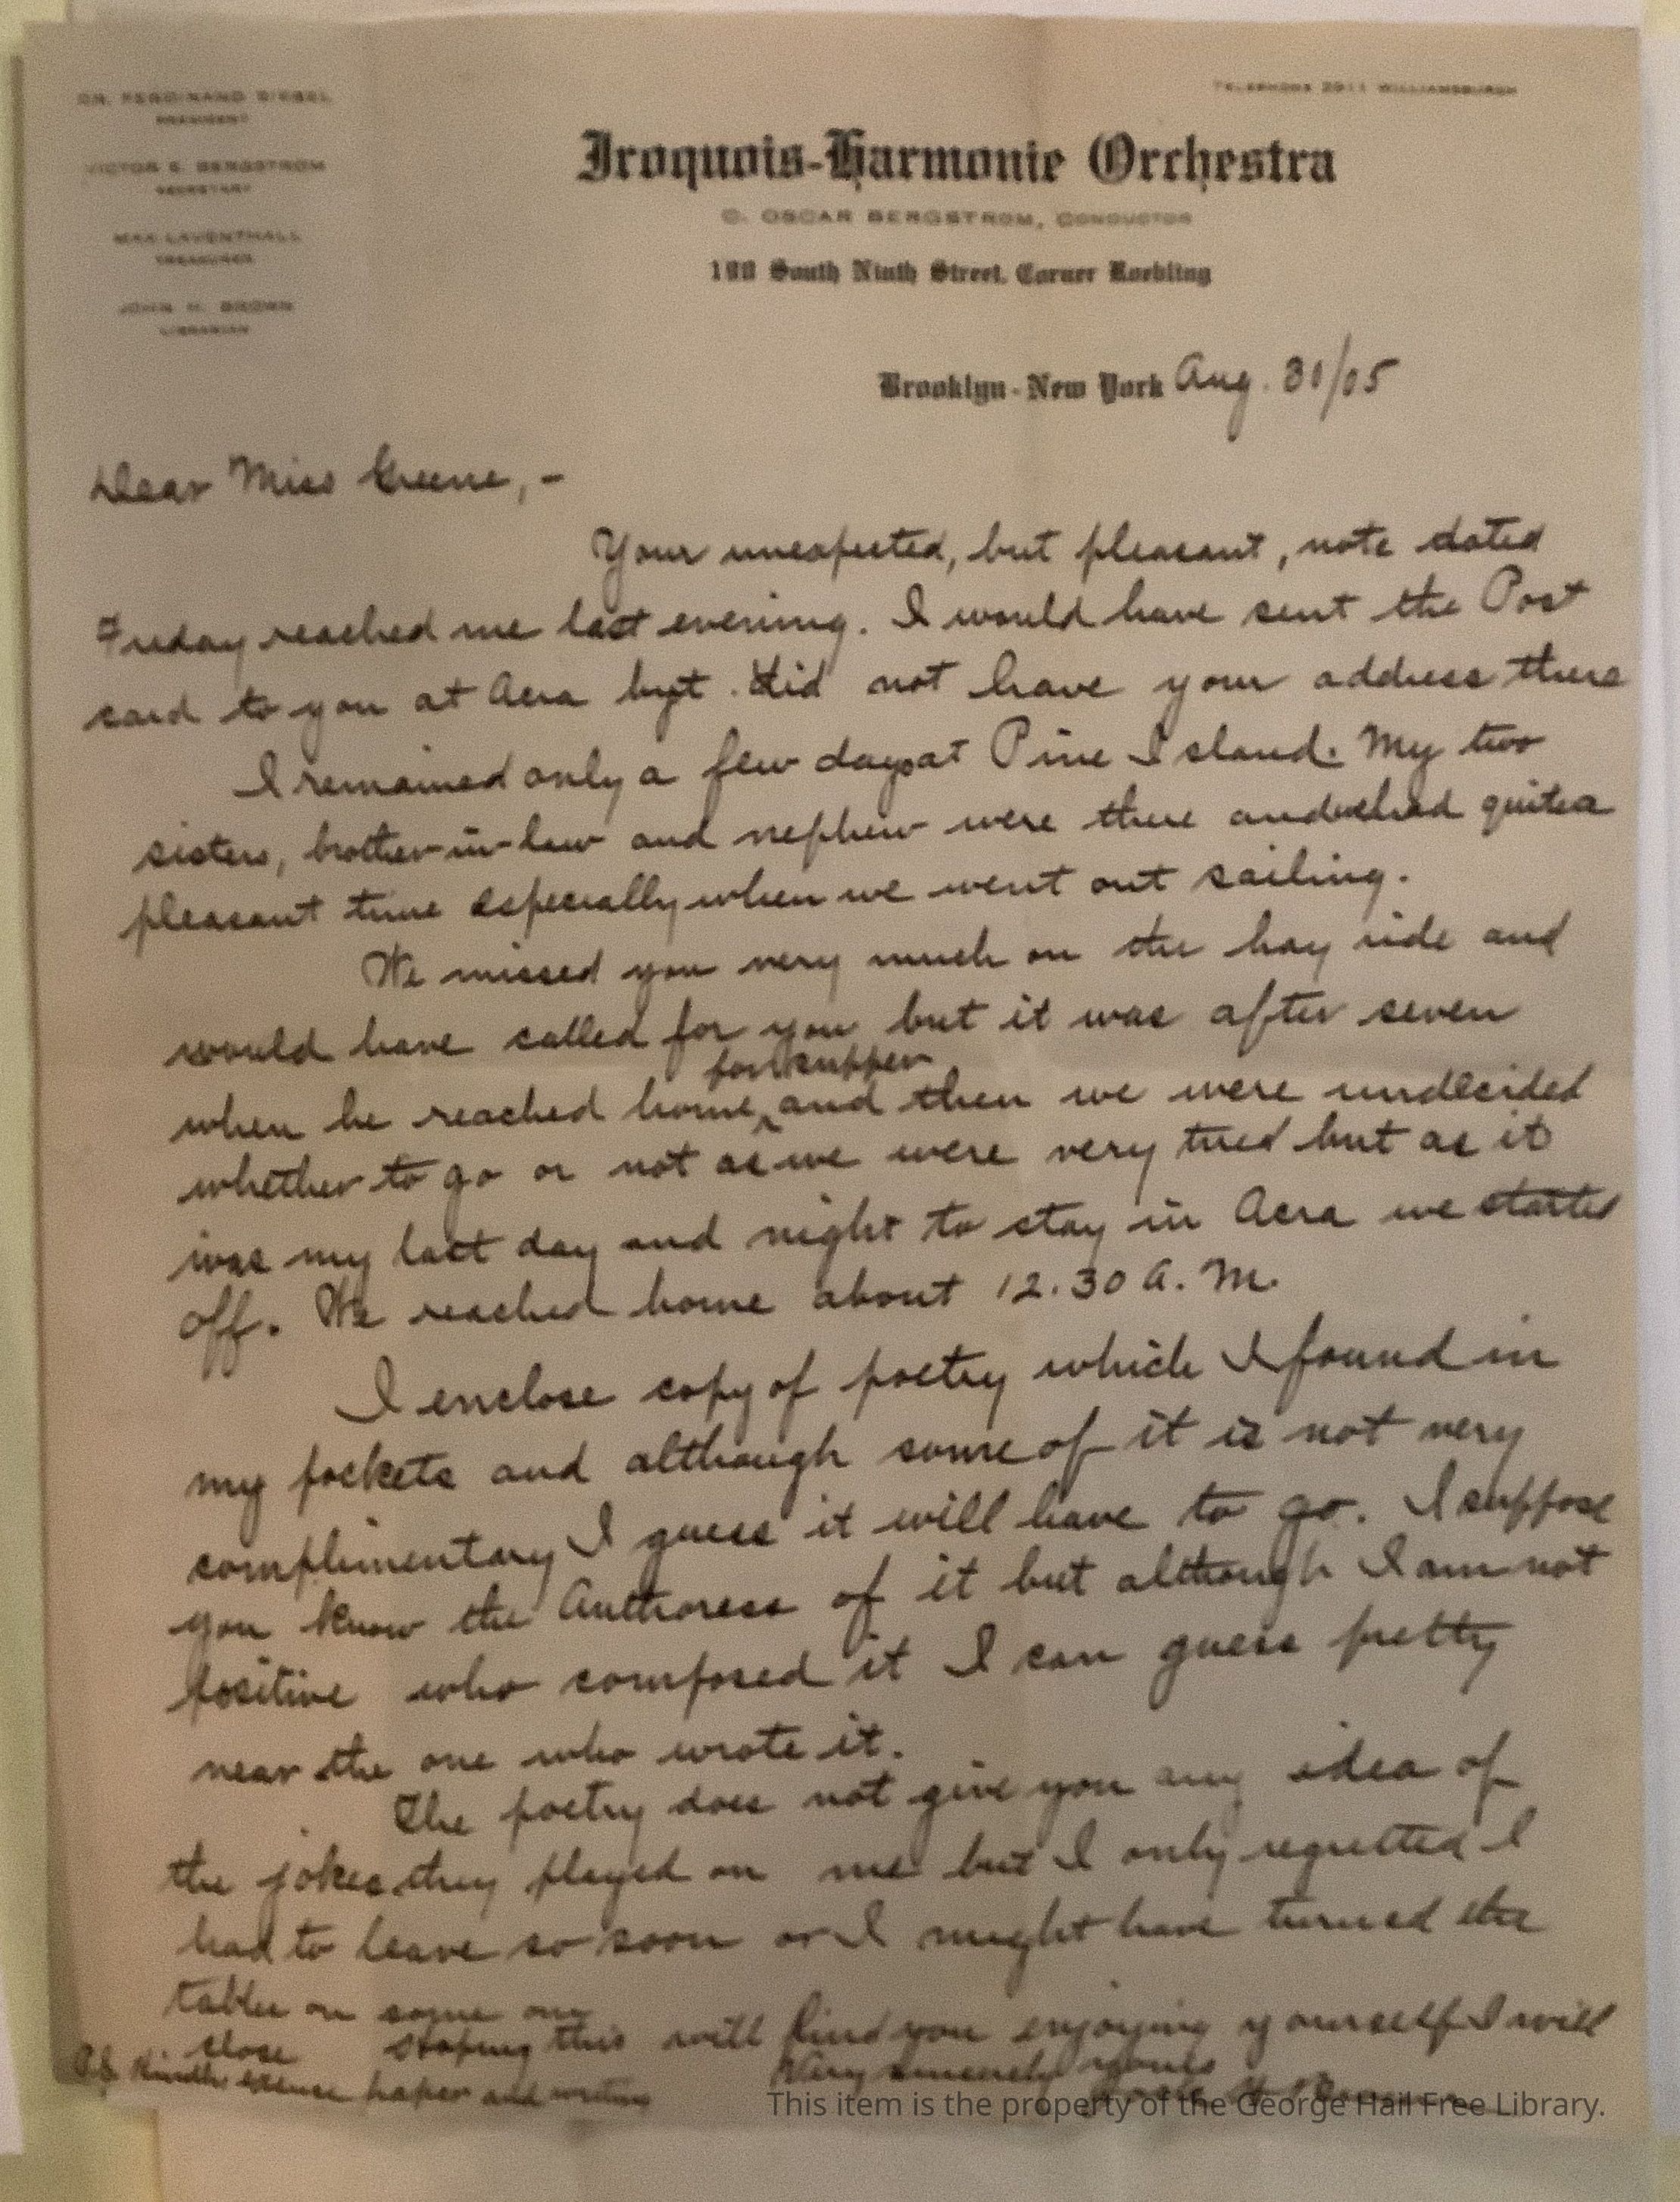 DR. FERDINAND SIEBEL
PRESIDENT
VICTOR E. BERGSTROM
SECRETARY
MAX LAVENTHALL
TREASURER
JOHN H. BROWN
LIBRARIAN
TELEPHONE 2911 WILLIAMSBURGH
Iroquois-Harmonie Orchestra
C. OSCAR BERGSTROM, CONDUCTOR
South Ninth Street, Corner Roebling
Brooklyn-New York Aug. 30/05
Dear Miss Greene,-
Your unexpected, but pleasant, note dated
Friday reached me last evening. I would have sent the Post
card to you at Acra but did not have your address there
I remained only a few days at Pine Island. My two
sisters, brother-in-law and nephew were there and we had quite a
pleasant time especially when we went out sailing.
We missed you very much on the hay ride and
would have called for you but it was after seven
for supper
when he reached home, and then we were undecided
whether to go or not as we were very tired but as it
was my last day and night to stay in Acra we started
off. We reached home about 12.30 A. M.
I enclose copy of poetry which I found in
my pockets and although some of it is not very
complimentary I guess it will have to go. I suppose
you know the Authoress of it but although I am not
positive who composed it I can guess pretty
near the one who wrote it.
The poetry does not give you any idea of
the jokes they played on me but I only regretted I
had to leave so soon or I might have turned the
tables on some one
Hoping this will find you enjoying yourself I will
close
Very sincerely yours
P.S. Kindly excuse paper and writing
This item is the property of the George Hail Free Library.